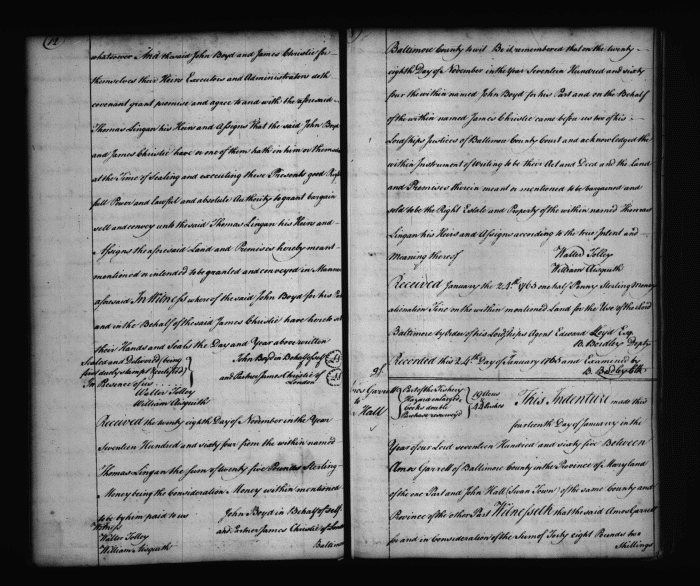 whatsoever And the said John Boyd and James Christie for
themselves their Heirs Executors and Administrators doth
covenant grant promise and agree to and with the aforesaid
Thomas Lingan his Heirs and Assigns That the said John Boyd
and James Christie have or one of them hath in him or themselves
at the Time of Sealing and executing these Presents good Right
full Power and lawful and absolute Authority to grant bargain
sell and convey unto the said Thomas Lingan his Heirs and
Assigns the aforesaid Land and Premises hereby meant
mentioned or intended to be granted and conveyed in Manner
aforesaid In Witness whereof the said John Boyd for his Part
and in the Behalf of the said James Christie have hereto set
their Hands and Seals the Day and Year above written
Sealed and Delivered (being
first duly stampt
In Presence of us
Walter Tolley
William Aisquith
John Boyd in Behalf Self
and Partner James Christie of
London
Received the twenty eighth Day of November in the Year
Seventeen Hundred and sixty four from the within named
Thomas Lingan the sum of twenty five Pounds Sterling
Money being the Consideration Money within mentioned
to be by him paid to us
Witness
Walter Tolley
William Aisquith
John Boyd in Behalf of Self
and Partner James Christie of London
Baltimore
Baltimore County to wit Be it remembered that on the twenty
eighth Day of November in the Year Seventeen Hundred and sixty
four the within named John Boyd for his Part and on the Behalf
of the within named James Christie came before us two of his
Lordships Justices of Baltimore County Court and acknowledged the
within Instrument of Writing to be their Act and Deed and the Land
and Premises therein meant or mentioned to be bargained and
sold to be the Right Estate and Property of the within named Thomas
Lingan his Heirs and Assigns according to the true Intent and
Meaning thereof
Walter Tolley
William Aisquith
Received January the 24th 1765 one half Penny Sterling Money
alienation Fine on the within mentioned Land for the Use of the Lord
Baltimore by Order of his Lordships Agent Edward Lloyd Esq
B. Bordley Depty
Recorded this 24th Day of January 1765 and Examined by
B. Bordley Clk
Amos Garrett
to
Hall
Part of the Fishery
This Indenture made this
fourteenth Day of January in the
Year of our Lord seventeen Hundred and sixty five Between
Amos Garrett of Baltimore County in the Province of Maryland
of the one Part and John Hall (Swan Town) of the same County and
Province of the other Part Witnesseth that the said Amos Garrett
for and in Consideration of the Sum of Forty eight Pounds two
Shillings